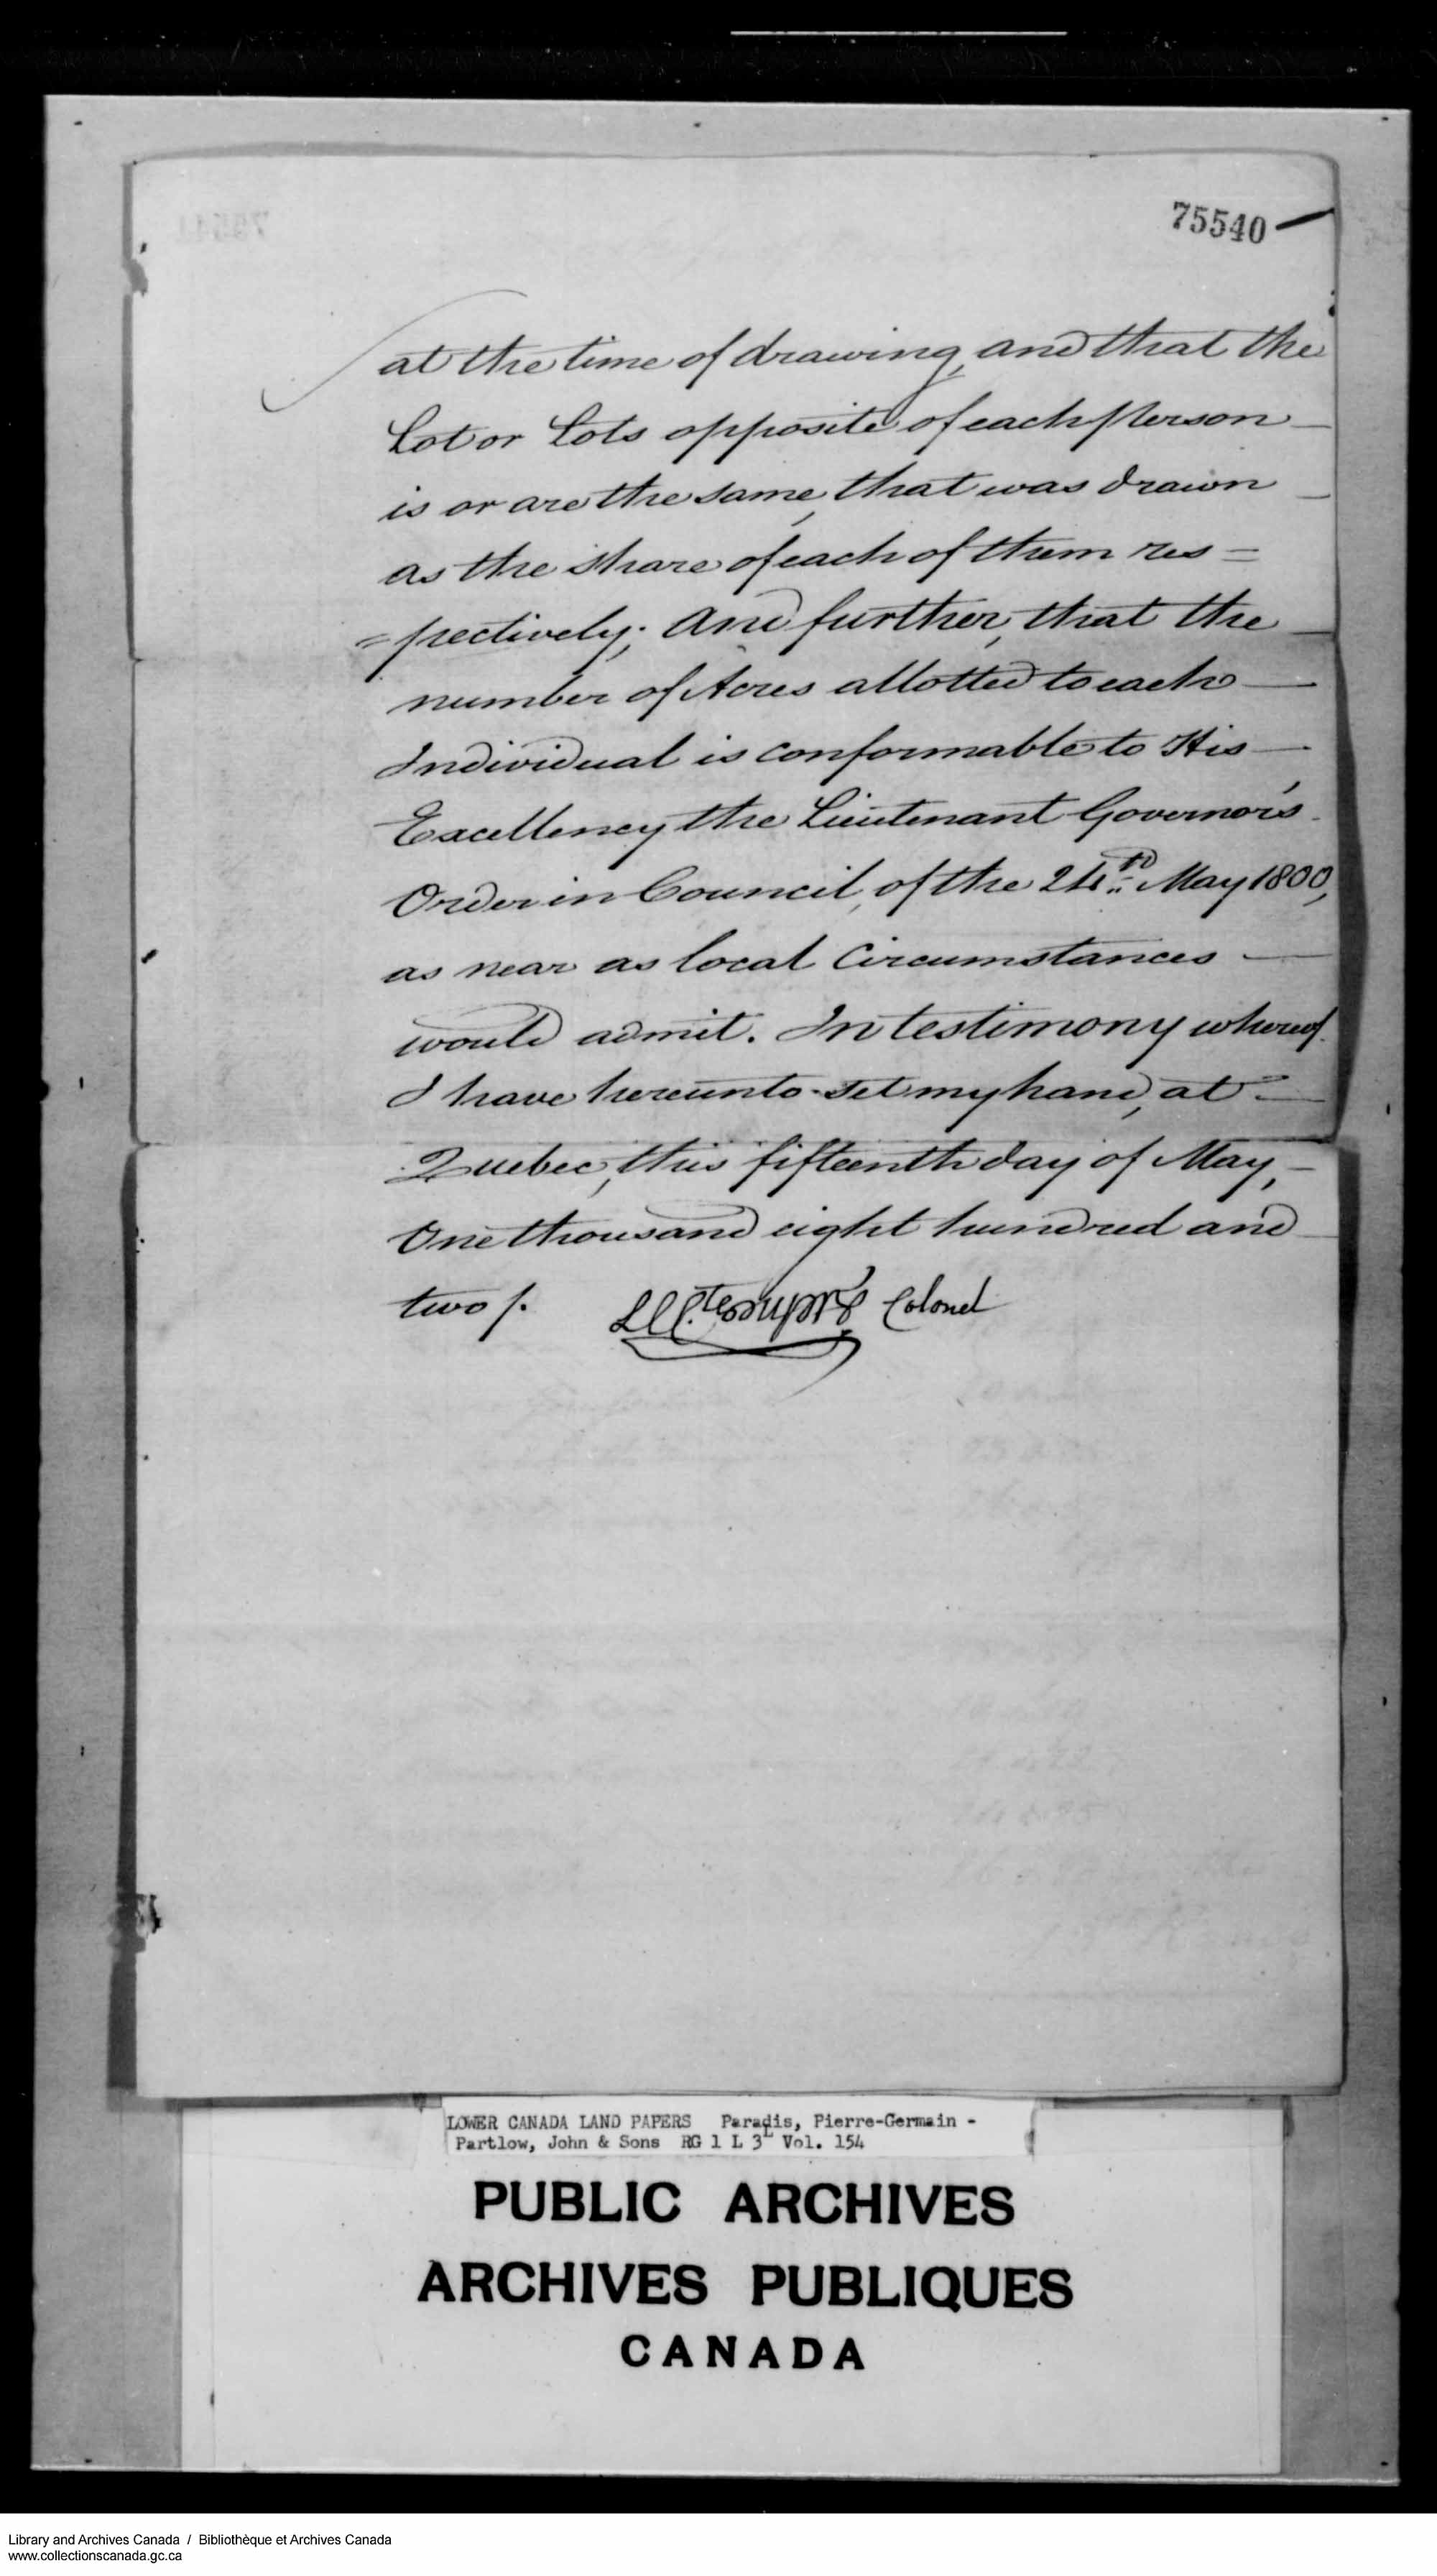 75540
at the time of drawing, and that the
Lot or Lots opposite of each person
is or are the same, that was drawn
as the share of each of them res =
= pectively; And further, that the
number of Acres allotted to each
Individual is conformable to His
Excellency the Lieutenant Governor's
Order in Council, of the 24th May 1800,
as near as local Circumstances
would admit. In testimony whereof
I have hereunto set my hand, at
Quebec, this fifteenth day of May,
One thousand eight hundred and
two /. Colonel
LOWER CANADA LAND PAPERS Paradis, Pierre-Germain -
Partlow, John & Sons RG 1 L 3L Vol. 154
PUBLIC ARCHIVES
ARCHIVES PUBLIQUES
CANADA
Library and Archives Canada / Bibliothèque et Archives Canada
www.collectionscanada.gc.ca